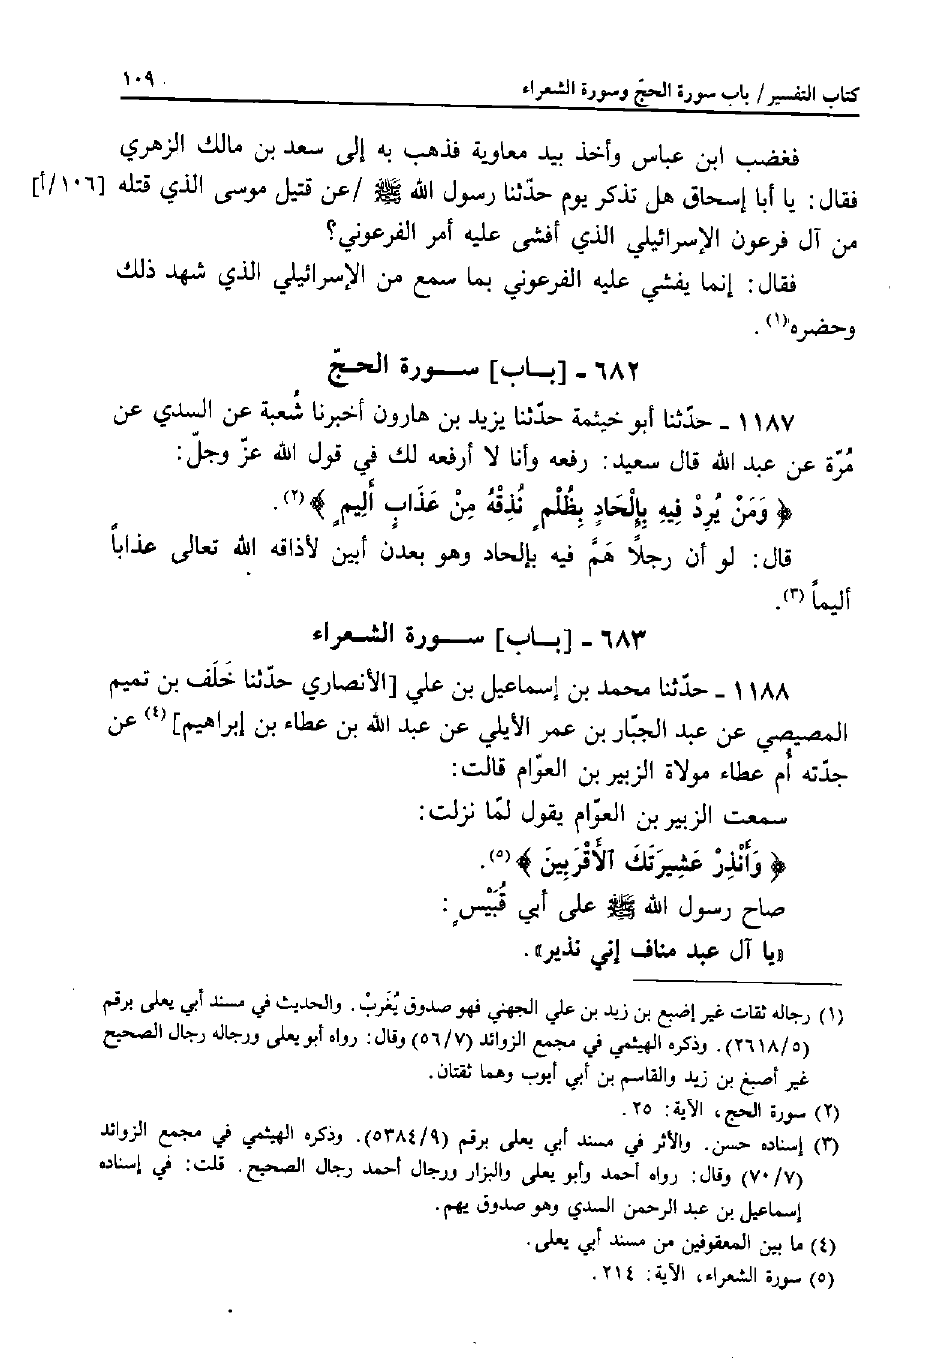 كتاب التفسير/ باب سورة الحجّ وسورة الشعراء
١٠٩
فغضب ابن عباس وأخذ بيد معاوية فذهب به إلى سعد بن مالك الزهري
فقال: يا أبا إسحاق هل تذكر يوم حدّثنا رسول الله ﷺ /عن قتيل موسى الذي قتله [١٠٦/أ]
من آل فرعون الإسرائيلي الذي أفشى عليه أمر الفرعوني؟
فقال: إنما يفشي عليه الفرعوني بما سمع من الإسرائيلي الذي شهد ذلك
وحضره(١).
٦٨٢ - [بـاب] ســورة الحـجّ
١١٨٧ - حدّثنا أبو خيثمة حدّثنا يزيد بن هارون أخبرنا شُعبة عن السدي عن
مُرّة عن عبد الله قال سعيد: رفعه وأنا لا أرفعه لك في قول الله عزّ وجلّ:
﴿ وَمَنْ يُرِدْ فِيهِ بِإِلْحَادٍ بِظُلْمٍ نُذِقْهُ مِنْ عَذَابٍ أَلِيمٍ ﴾(٢).
قال: لو أن رجلاً هَمَّ فيه بإلحاد وهو بعدن أبين لأذاقه الله تعالى عذاباً
أليماً(٣).
٦٨٣ - [بـاب] ســورة الشـعراء
١١٨٨ - حدّثنا محمد بن إسماعيل بن علي [الأنصاري حدّثنا خَلَف بن تميم
المصيصي عن عبد الجبّار بن عمر الأيلي عن عبد الله بن عطاء بن إبراهيم](٤) عن
جدّته أُم عطاء مولاة الزبير بن العوّام قالت:
سمعت الزبير بن العوّام يقول لمّا نزلت:
﴿ وَأَنْذِرْ عَشِيرَتَكَ ٱلْأَقْرَبِينَ ﴾(٥).
صاح رسول الله ﷺ على أبي قُبَيْسٍ:
«يا آل عبد مناف إني نذير».
(١) رجاله ثقات غير إضبع بن زيد بن علي الجهني فهو صدوق يُغَرِبْ. والحديث في مسند أبي يعلى برقم
(٢٦١٨/٥). وذكره الهيثمي في مجمع الزوائد (٥٦/٧) وقال: رواه أبو يعلى ورجاله رجال الصحيح
غير أصبغ بن زيد والقاسم بن أبي أيوب وهما ثقتان.
(٢) سورة الحج، الآية: ٢٥.
(٣) إسناده حسن. والأثر في مسند أبي يعلى برقم (٥٣٨٤/٩). وذكره الهيثمي في مجمع الزوائد
(٧٠/٧) وقال: رواه أحمد وأبو يعلى والبزار ورجال أحمد رجال الصحيح. قلت: في إسناده
إسماعيل بن عبد الرحمن السدي وهو صدوق يهم.
(٤) ما بين المعقوفين من مسند أبي يعلى.
(٥) سورة الشعراء، الآية: ٢١٤.